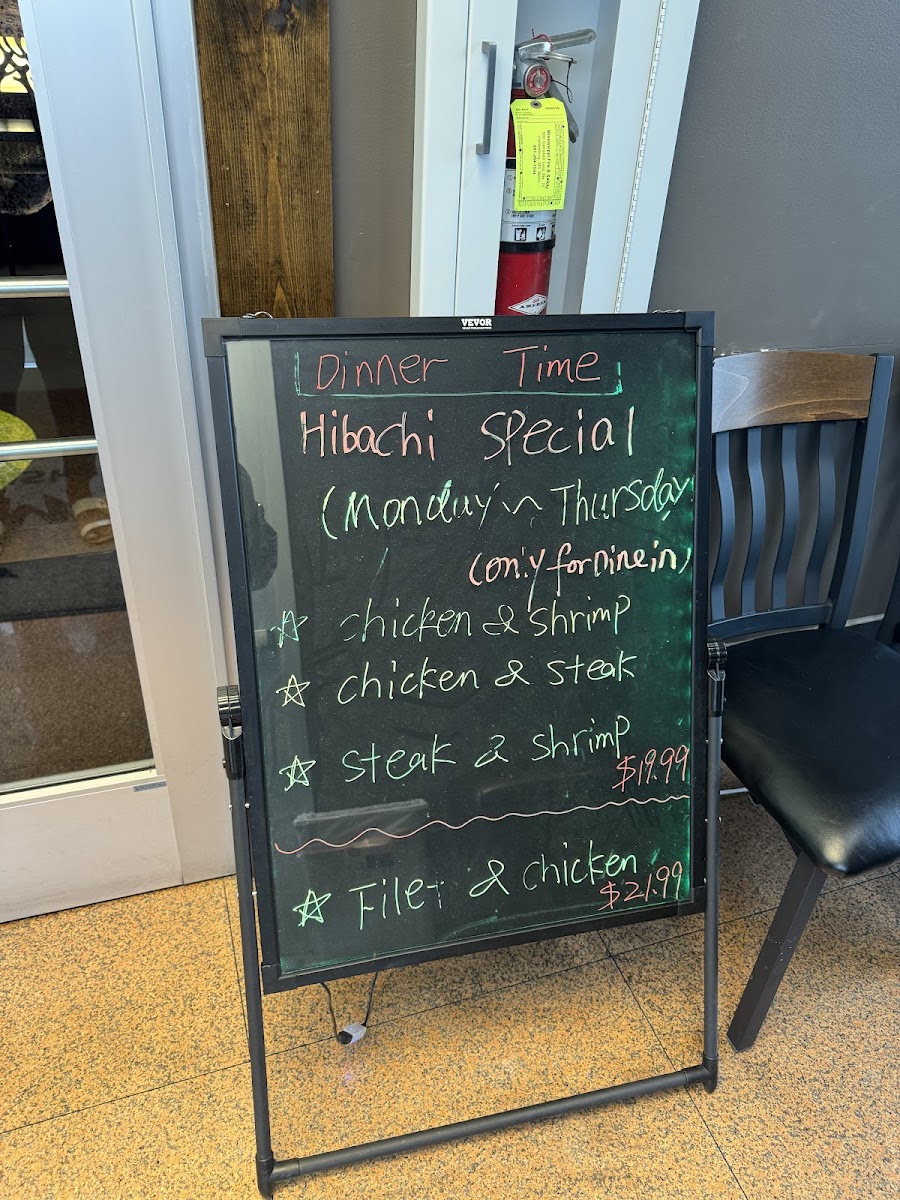 Mississippi Fire & Safety
VEVOR
Dinner Time
Hibachi Special
(Monday ~ Thursday
(only for Dine in)
☆ chicken & shrimp
☆ chicken & steak
☆ steak & shrimp
$19.99
☆ Filet & chicken
$21.99